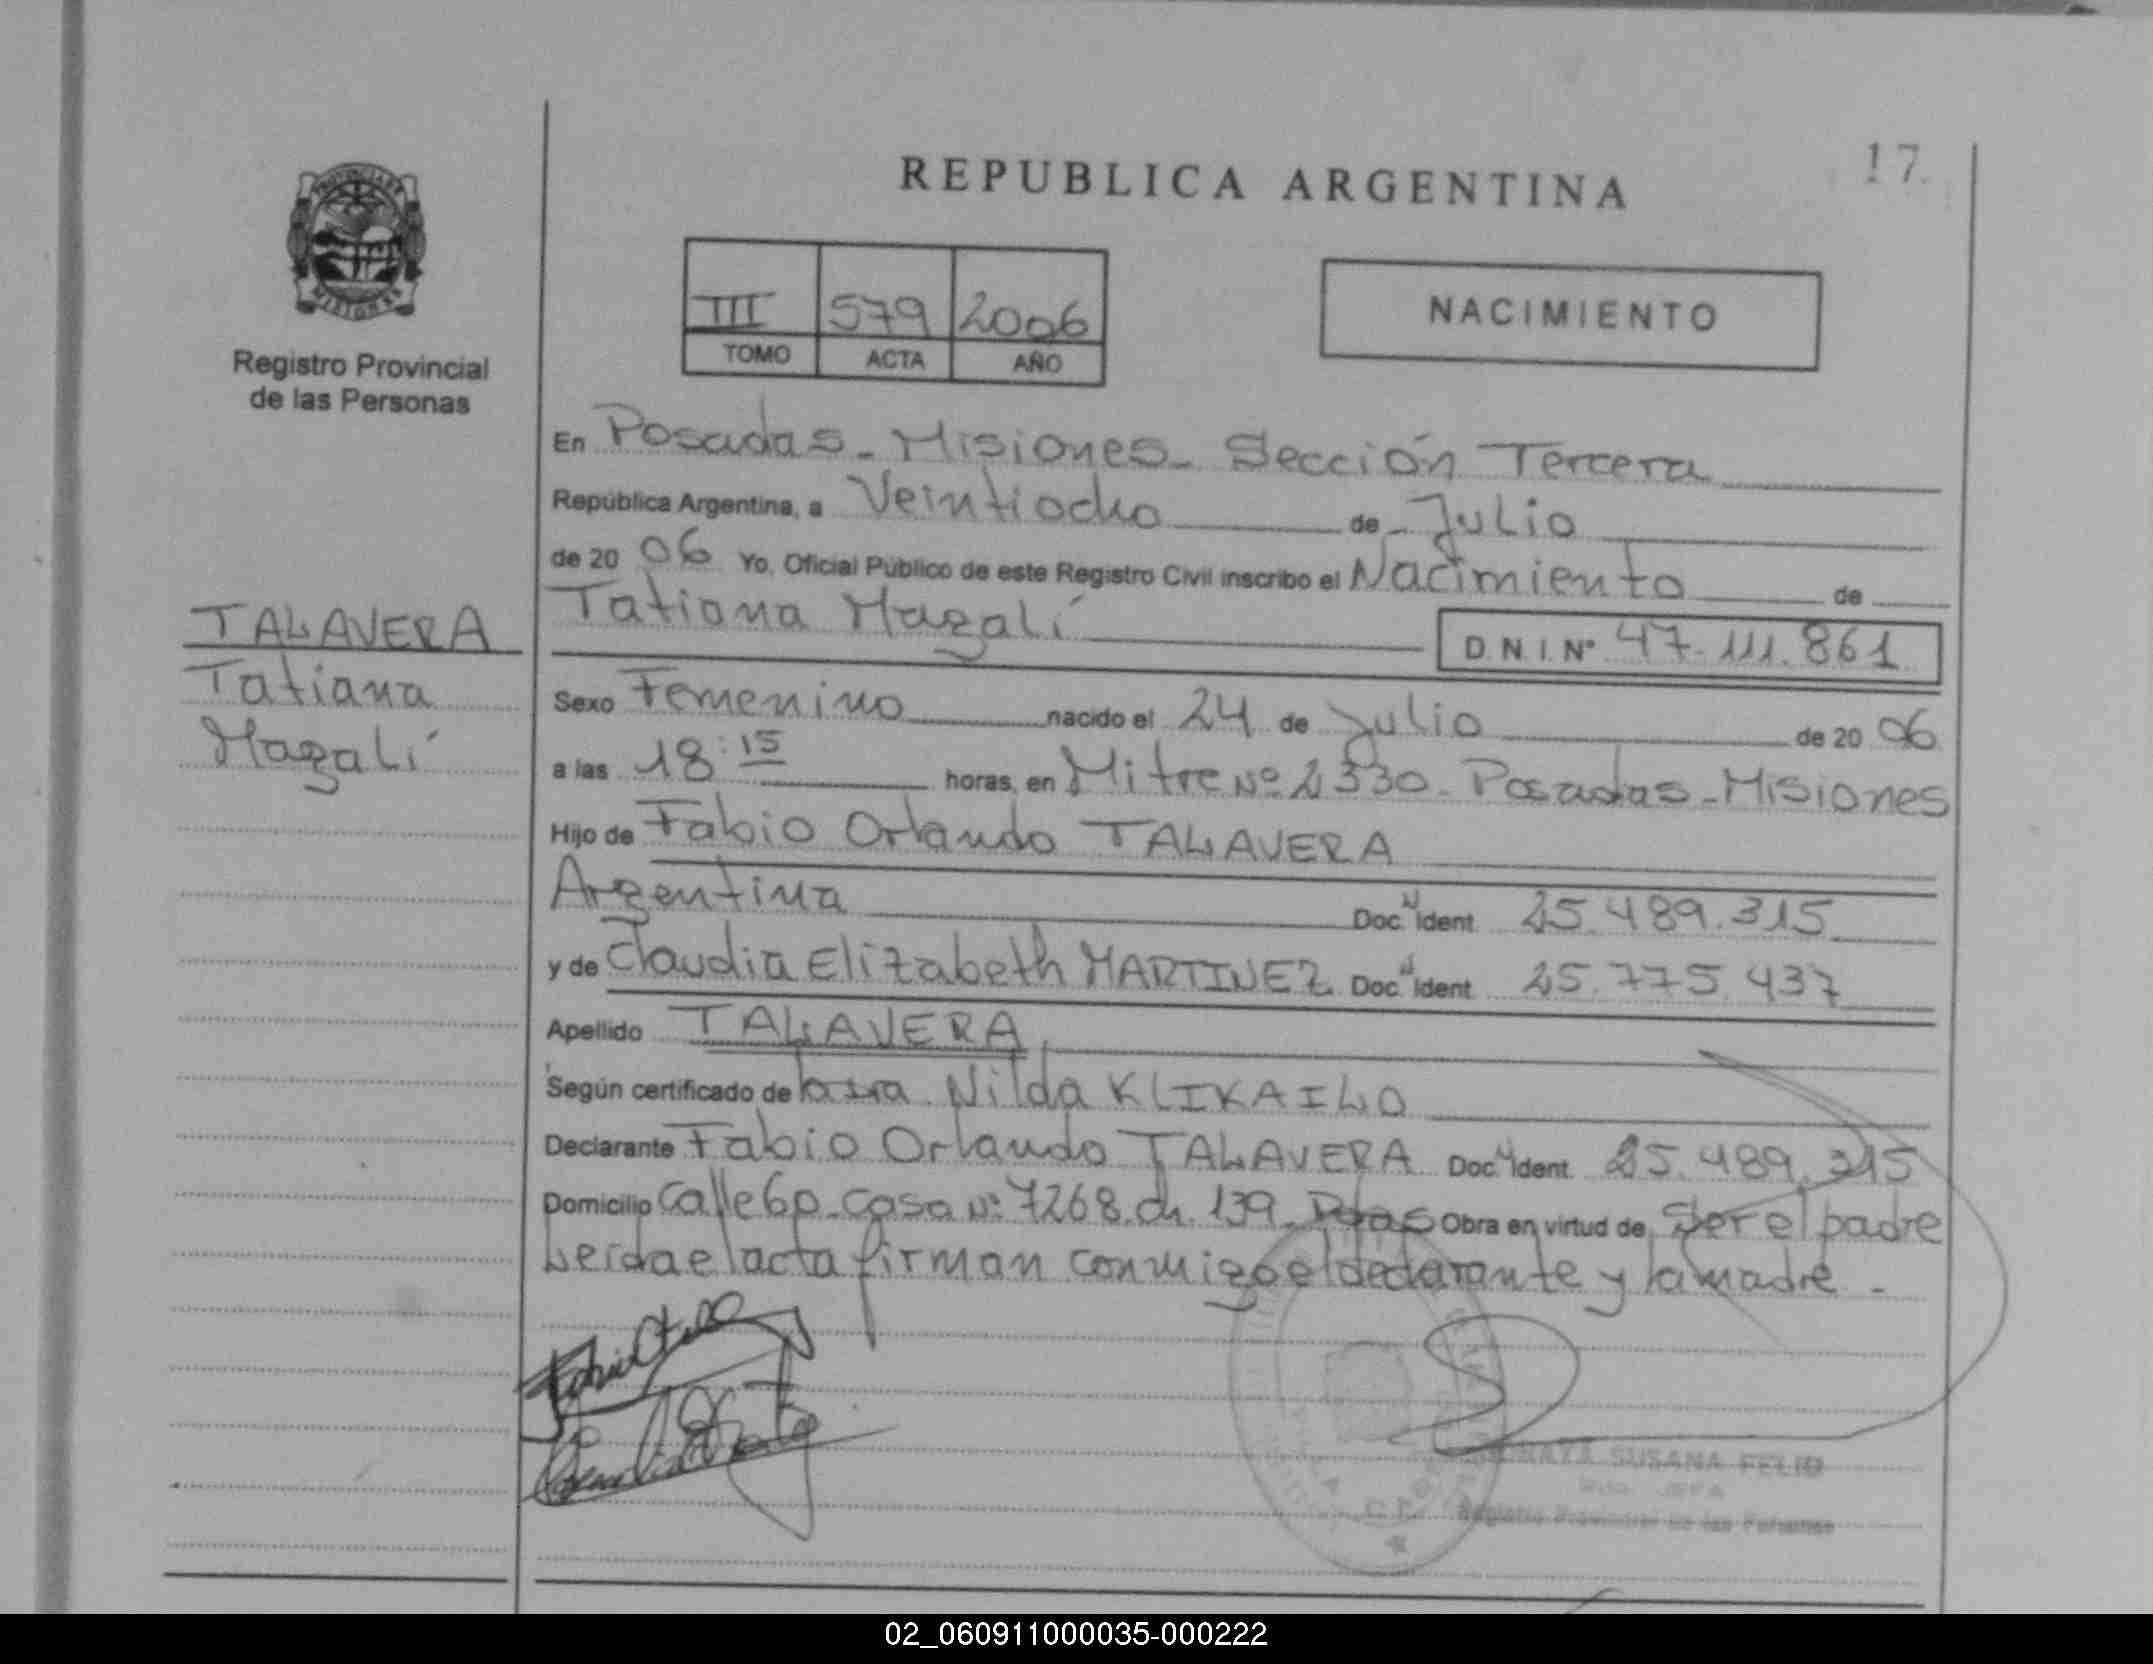 17
REPUBLICA ARGENTINA
III 579 2006
TOMO ACTA AÑO
NACIMIENTO
PROVINCIA DE
MISIONES
Registro Provincial
de las Personas
En Posadas - Misiones - Sección Tercera
República Argentina, a Veintiocho de Julio
de 20 06 Yo, Oficial Público de este Registro Civil inscribo el Nacimiento de
Tatiana Magalí
D.N.I. Nº 47.111.861
TALAVERA
Tatiana
Magalí
Sexo Femenino nacido el 24 de Julio de 20 06
a las 18:15 horas, en Mitre Nº 2330 - Posadas - Misiones
Hijo de Fabio Orlando TALAVERA
Argentina Doc. Ident. 25.489.315
y de Claudia Elizabeth MARTINEZ Doc. Ident. 25.775.437
Apellido TALAVERA
Según certificado de Nilda KLIKAILO
Declarante Fabio Orlando TALAVERA Doc. Ident. 25.489.315
Domicilio Calle 60 - Casa Nº 7268 ch. 139 - Pdas Obra en virtud de Ser el padre
Leida el acta firman conmigo el declarante y la madre -
SUSANA FELIU
JEFA
Registro Provincial de las Personas
02_060911000035-000222